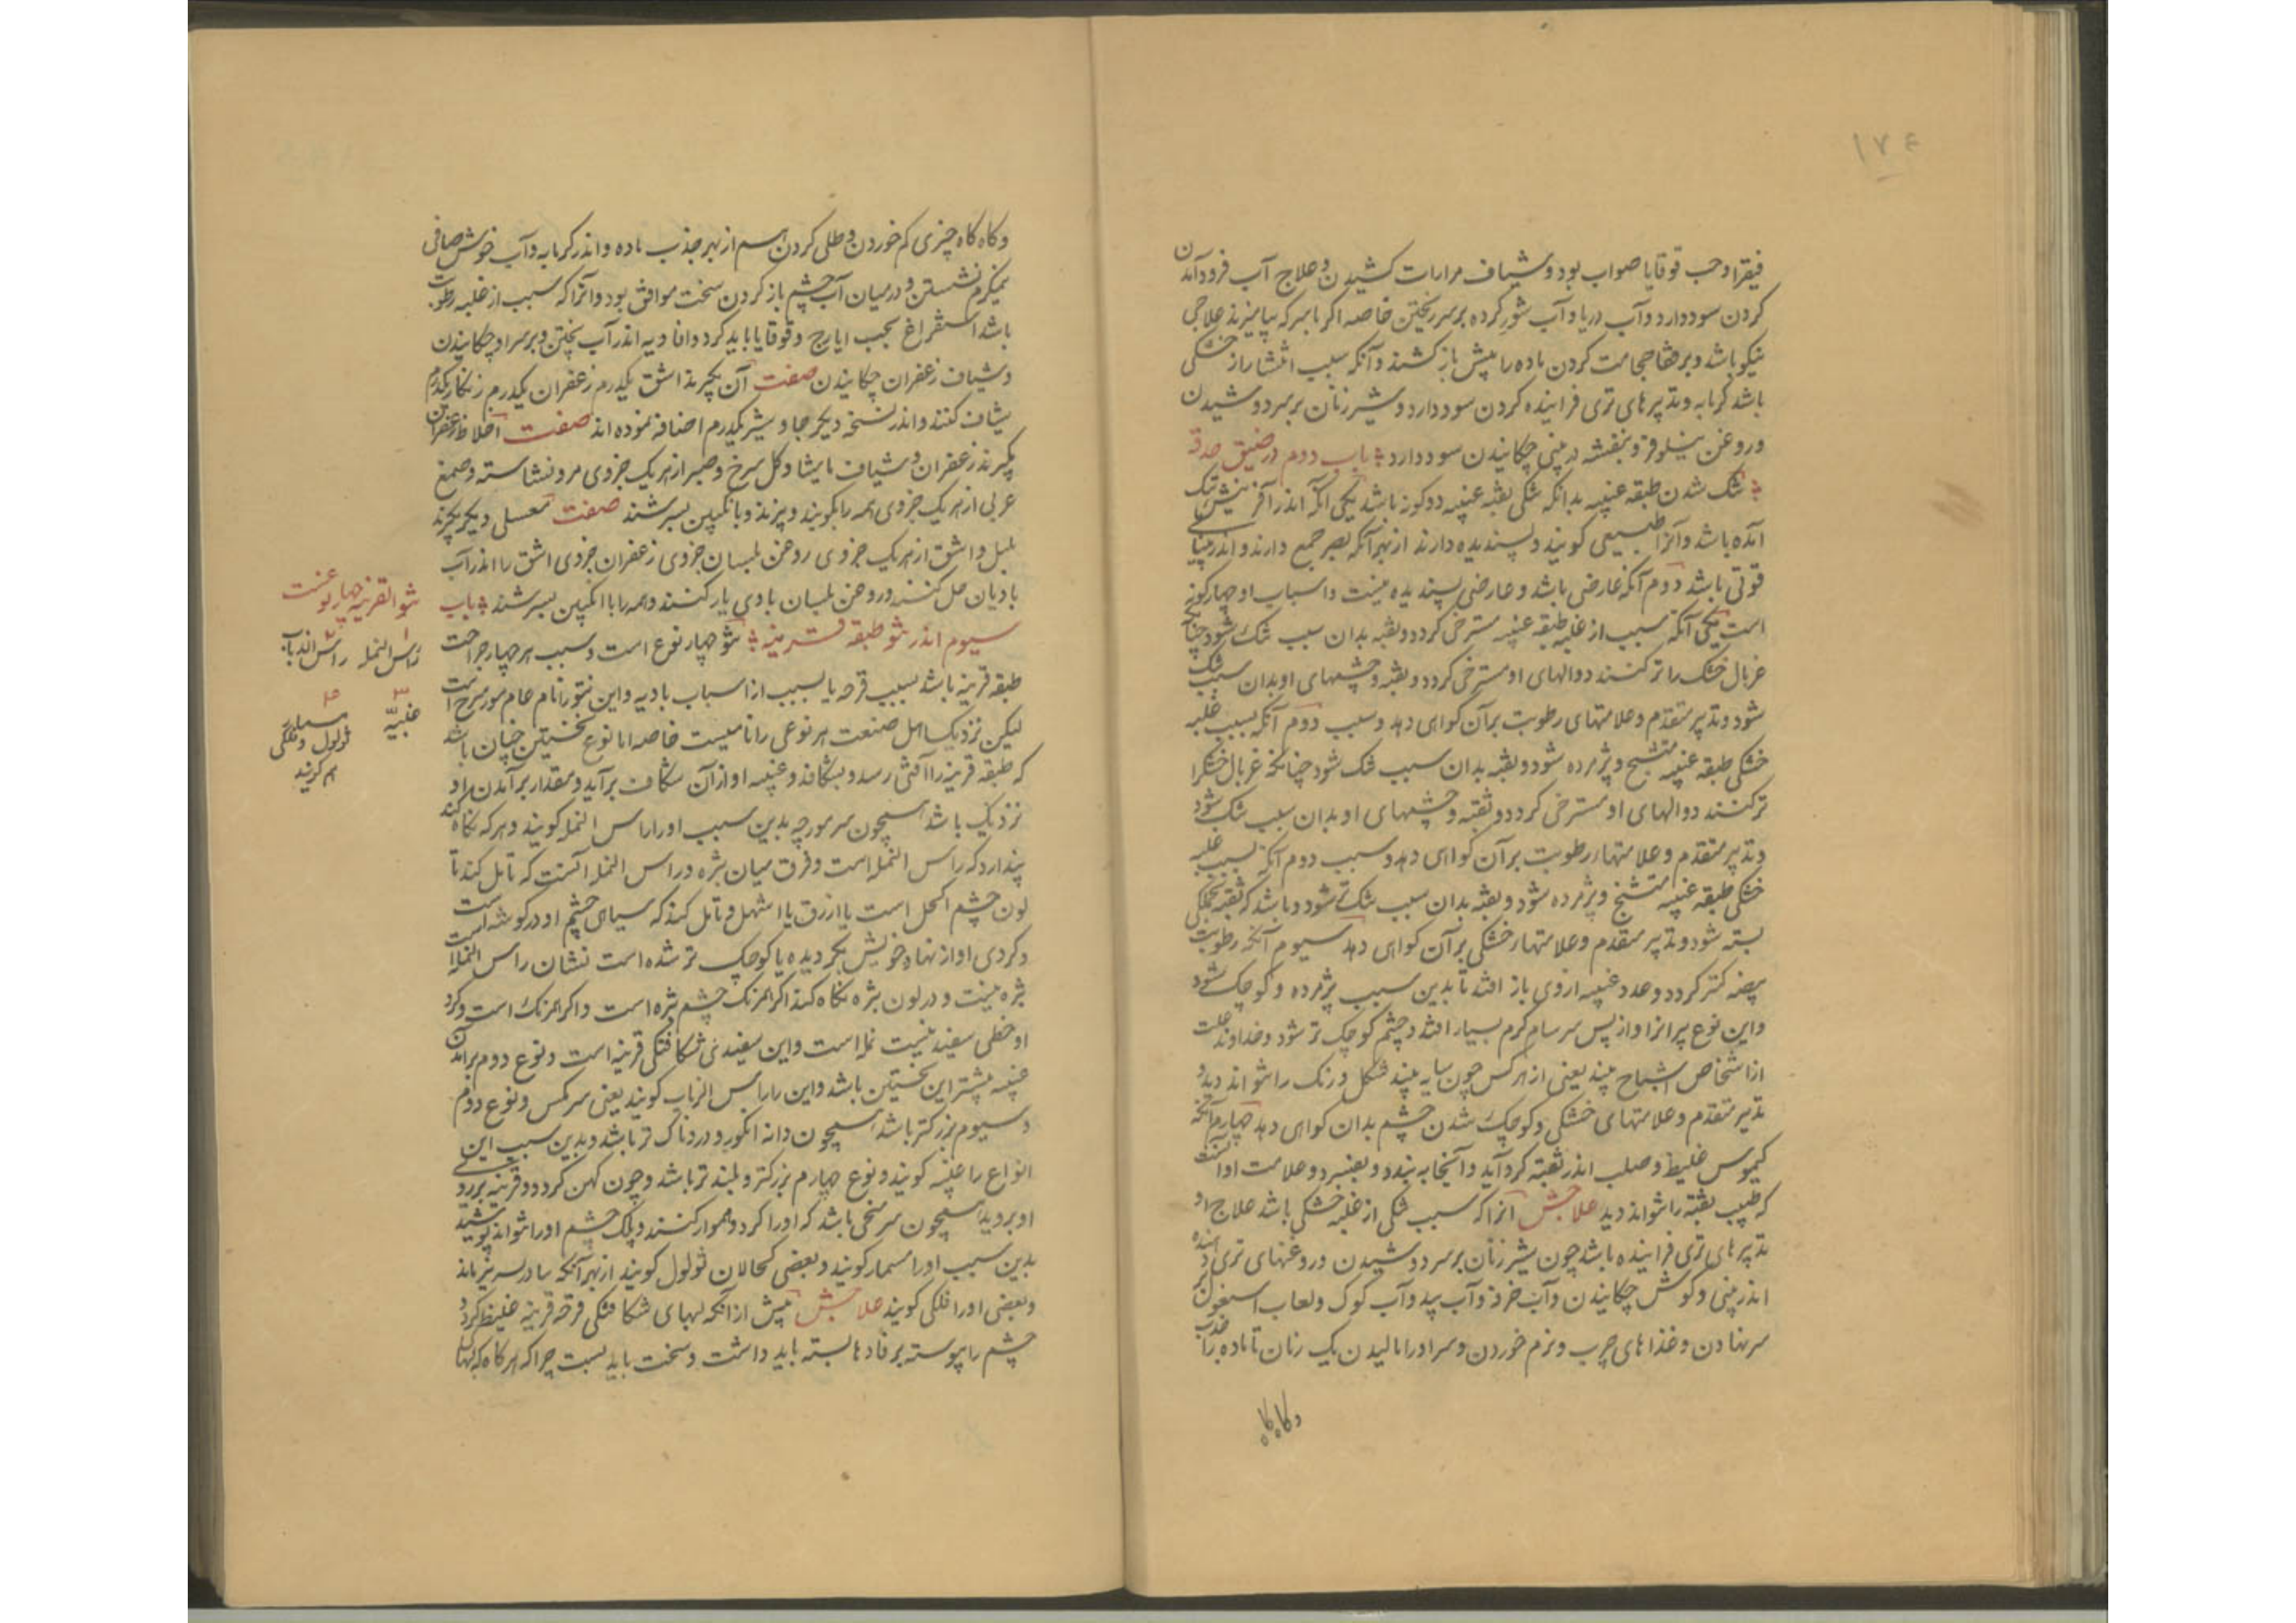 ۱۷۴
فیقرا و حب قوقایا صواب بود و شیاف مرارات کشیدن و علاج آب فرود آمدن
کردن سود دارد و آب دریا و آب شور کرده بر سر ریختن خاصه اکر با سرکه بیامیزند علاجی
نیکو باشد و بر قفا حجامت کردن ماده را بپش باز کشند و آنکه سبب انتشار از خشکی
باشد کرمابه و تدبیرهای تری فزاینده کردن سود دارد و شیر زنان بر سر دوشیدن
و روغن نیلوفر و بنفشه در بینی چکانیدن سود دارد باب دوم در ضیق حدقه
تنک شدن طبقه عنبیه بدانکه تنکی ثقبه عنبیه دو کونه باشد یکی آنکه اندر آفرینش تنک
آمده باشد و آنرا طبیعی کویند و پسندیده دارند از بهر آنکه بصر جمع دارند و اندر بینایی
قوتی باشد دوم آنکه عارضی باشد و عارضی پسندیده نیست و اسباب او چهار کونه
است یکی آنکه سبب از غلبه طبقه عنبیه مسترخی کردد و ثقبه بدان سبب تنک شود چنانکه
غربال خشک را تر کنند دوالهای او مسترخی کردد و ثقبه و چشمهای او بدان سبب تنک
شود و تدبیر متقدم و علامتهای رطوبت بر آن کواهی دهد و سبب دوم آنکه بسبب غلبه
خشکی طبقه عنبیه متشنج و پژمرده شود و ثقبه بدان سبب تنک شود چنانکه غربال خشک را
تر کنند دوالهای او مسترخی کردد و ثقبه و چشمهای او بدان سبب تنک شود
و تدبیر متقدم و علامتهار رطوبت بر آن کواهی دهد و سبب دوم آنکه بسبب غلبه
خشکی طبقه عنبیه متشنج و پژمرده شود و ثقبه بدان سبب تنک شود و باشد که ثقبه بجملکی
بسته شود و تدبیر متقدم و علامتهار خشکی بر آن کواهی دهد سیوم آنکه رطوبت
بیضه کمتر کردد و مدد عنبیه از وی باز افتد تا بدین سبب پژمرده و کوچک شود
و این نوع پیرانرا و از پس سرسام کرم بسیار افتد و چشم کوچک تر شود و خداوند علت
از اشخاص اشباح بیند یعنی از هر کس چون سایه بیند شکل و رنک را نتواند دید و
تدبیر متقدم و علامتهای خشکی و کوچک شدن چشم بدان کواهی دهد چهارم آنکه
کیموس غلیظ و صلب اندر ثقبه کرد آید و آنجا به بندد و بفسرد و علامت او آنست
که طبیب ثقبه را نتواند دید علاجش آنرا که سبب تنکی از غلبه خشکی باشد علاج او
تدبیرهای تری فزاینده باشد چون شیر زنان بر سر دوشیدن و روغنهای تری دهنده
اندر بینی و کوش چکانیدن و آب خرفه و آب بید و آب کوک و لعاب اسبغول بر
سر نهادن و غذاهای چرب و نرم خوردن و سر او را مالیدن یک زمان تا ماده را جذب
و کاه کاه
و کاه کاه چیزی کم خوردن و طلی کردن هم از بهر جذب ماده و اندر کرمابه و آب خوش صافی
نیمکرم نشستن و در میان آب چشم باز کردن سخت موافق بود و آنرا که سبب از غلبه رطوبت
باشد استفراغ بحب ایارج و قوقایا باید کرد و افاویه اندر آب پختن و بر سر او چکانیدن
و شیاف زعفران چکانیدن صفت آن بکیرند اشق یکدرم زعفران یکدرم زنکار یکدرم
شیاف کنند و اندر نسخه دیکر جاوشیر یکدرم اضافه نموده اند صفت اخلاط زعفران
بکیرند زعفران و شیاف مامیثا و کل سرخ و صبر از هر یک جزوی مر و نشاسته و صمغ
عربی از هر یک جزوی همه را بکوبند و ببزند و بانکبین بسرشند صفت معسلی دیکر بکیرند
بلبل و اشق از هر یک جزوی روغن بلسان جزوی زعفران جزوی اشق را اندر آب
بادیان حل کنند و روغن بلسان با وی یار کنند و همه را با انکبین بسرشند باب
سیوم اندر نتو طبقه قرنیه نتو چهار نوع است و سبب هر چهار جراحت
طبقه قرنیه باشد بسبب قرحه یا بسبب از اسباب بادیه و این نتو را نام عام مورسرج است
لیکن نزدیک اهل صنعت هر نوعی را نامیست خاصه اما نوع نخستین چنان باشد
که طبقه قرنیه را آفتی رسد و بشکافد و عنبیه او از آن شکاف برآید و مقدار برآمدن او
نزدیک باشد همچون سر مورچه بدین سبب او را راس النمله کویند و هر که نکاه کند
پندارد که راس النمله است و فرق میان بثره و راس النمله آنست که تامل کند تا
لون چشم اکحل است یا ازرق یا اشهل و تامل کند که سیاهی چشم او در کوشه است
و کردی او از نهاد خویش بکردیده یا کوچک تر شده است نشان راس النمله است
بثره نیست و در لون بثره نکاه کند اکر همرنک چشم بثره است و اکر همرنک است و کرد
او خطی سفید نیست نمله است و این سفیدی شکافتکی قرنیه است و نوع دوم برآمدن
عنبیه بیشتر این نخستین باشد و این را راس الذباب کویند یعنی سر مکس و نوع دوم
و سیوم بزرکتر باشد همچون دانه انکور و دردناک تر باشد و بدین سبب این
انواع را عنبیه کویند و نوع چهارم بزرکتر و بلند تر باشد و چون کهن کردد و قرنیه بر رو
او بروید همچون سر میخی باشد که او را کرد و هموار کنند و پلک چشم او را نتواند پوشید
بدین سبب او را مسمار کویند و بعضی کحالان ثولول کویند از بهر آنکه
و بعضی او را فلکی کویند علاجش پیش از آنکه لبهای شکافتکی قرحه قرنیه غلیظ کردد
چشم را پیوسته برفادها بسته باید داشت و سخت باید بست چرا که هر کاه که لبها
نتو القرنیه چهار نوعست
راس النمله راس الذباب
۳ ۴
عنبیه مسمار
ثولول و فلکی
هم کویند